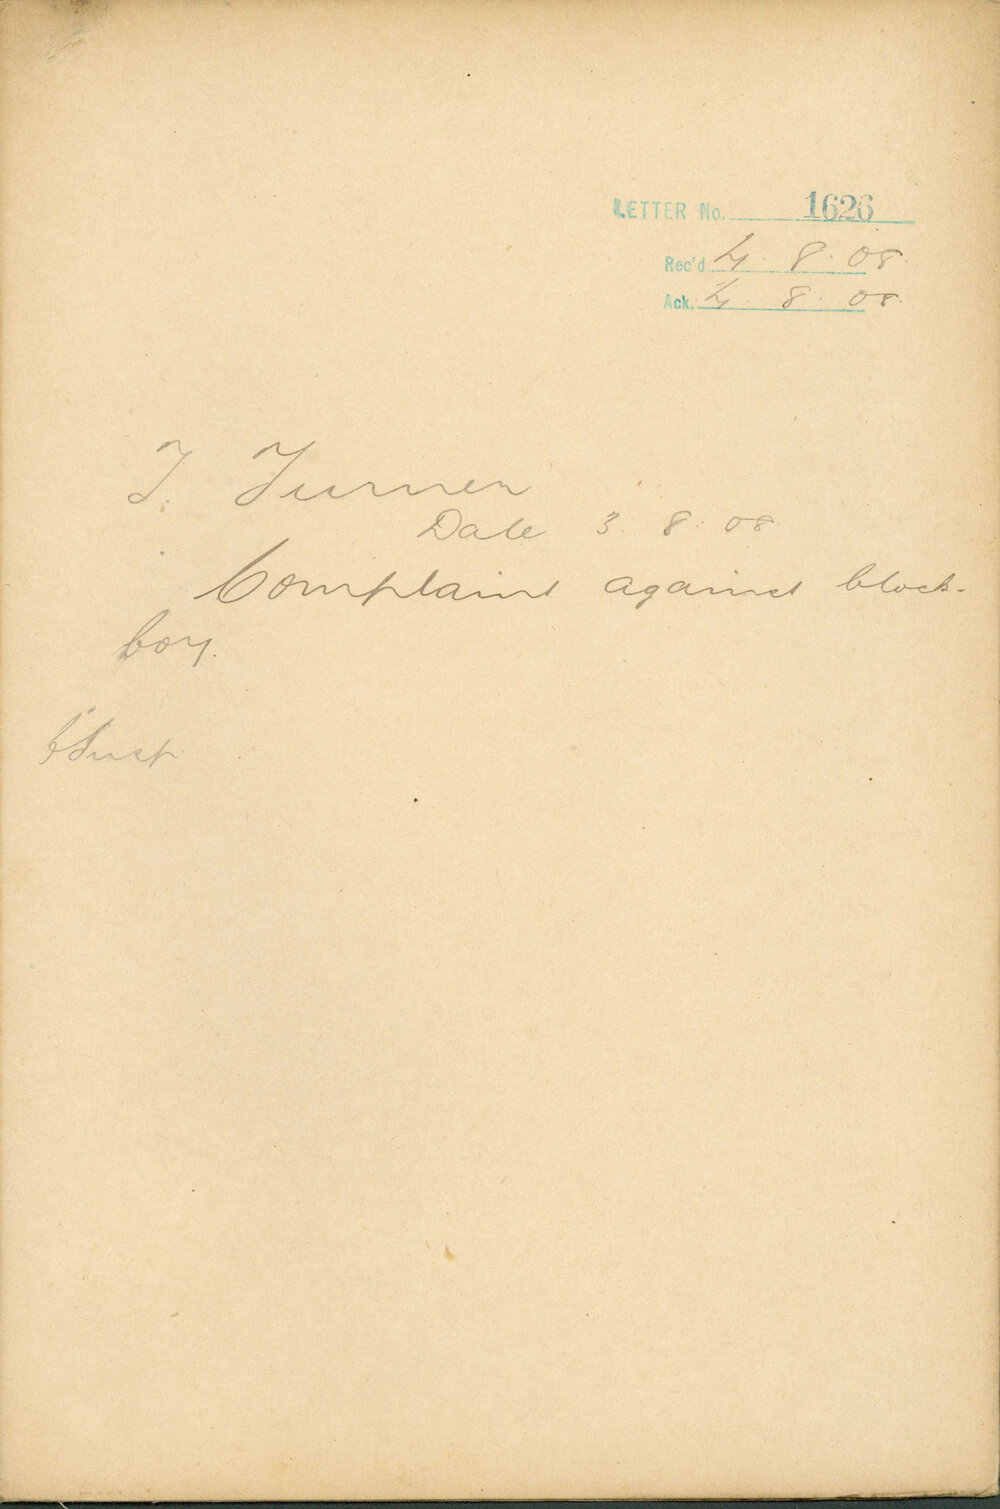 LETTER No. 1626
Rec'd 4. 8. 08.
Ack. 4. 8. 08.
T. Turner
Date 3. 8. 08
Complaint against block-
boy.
C Insp.